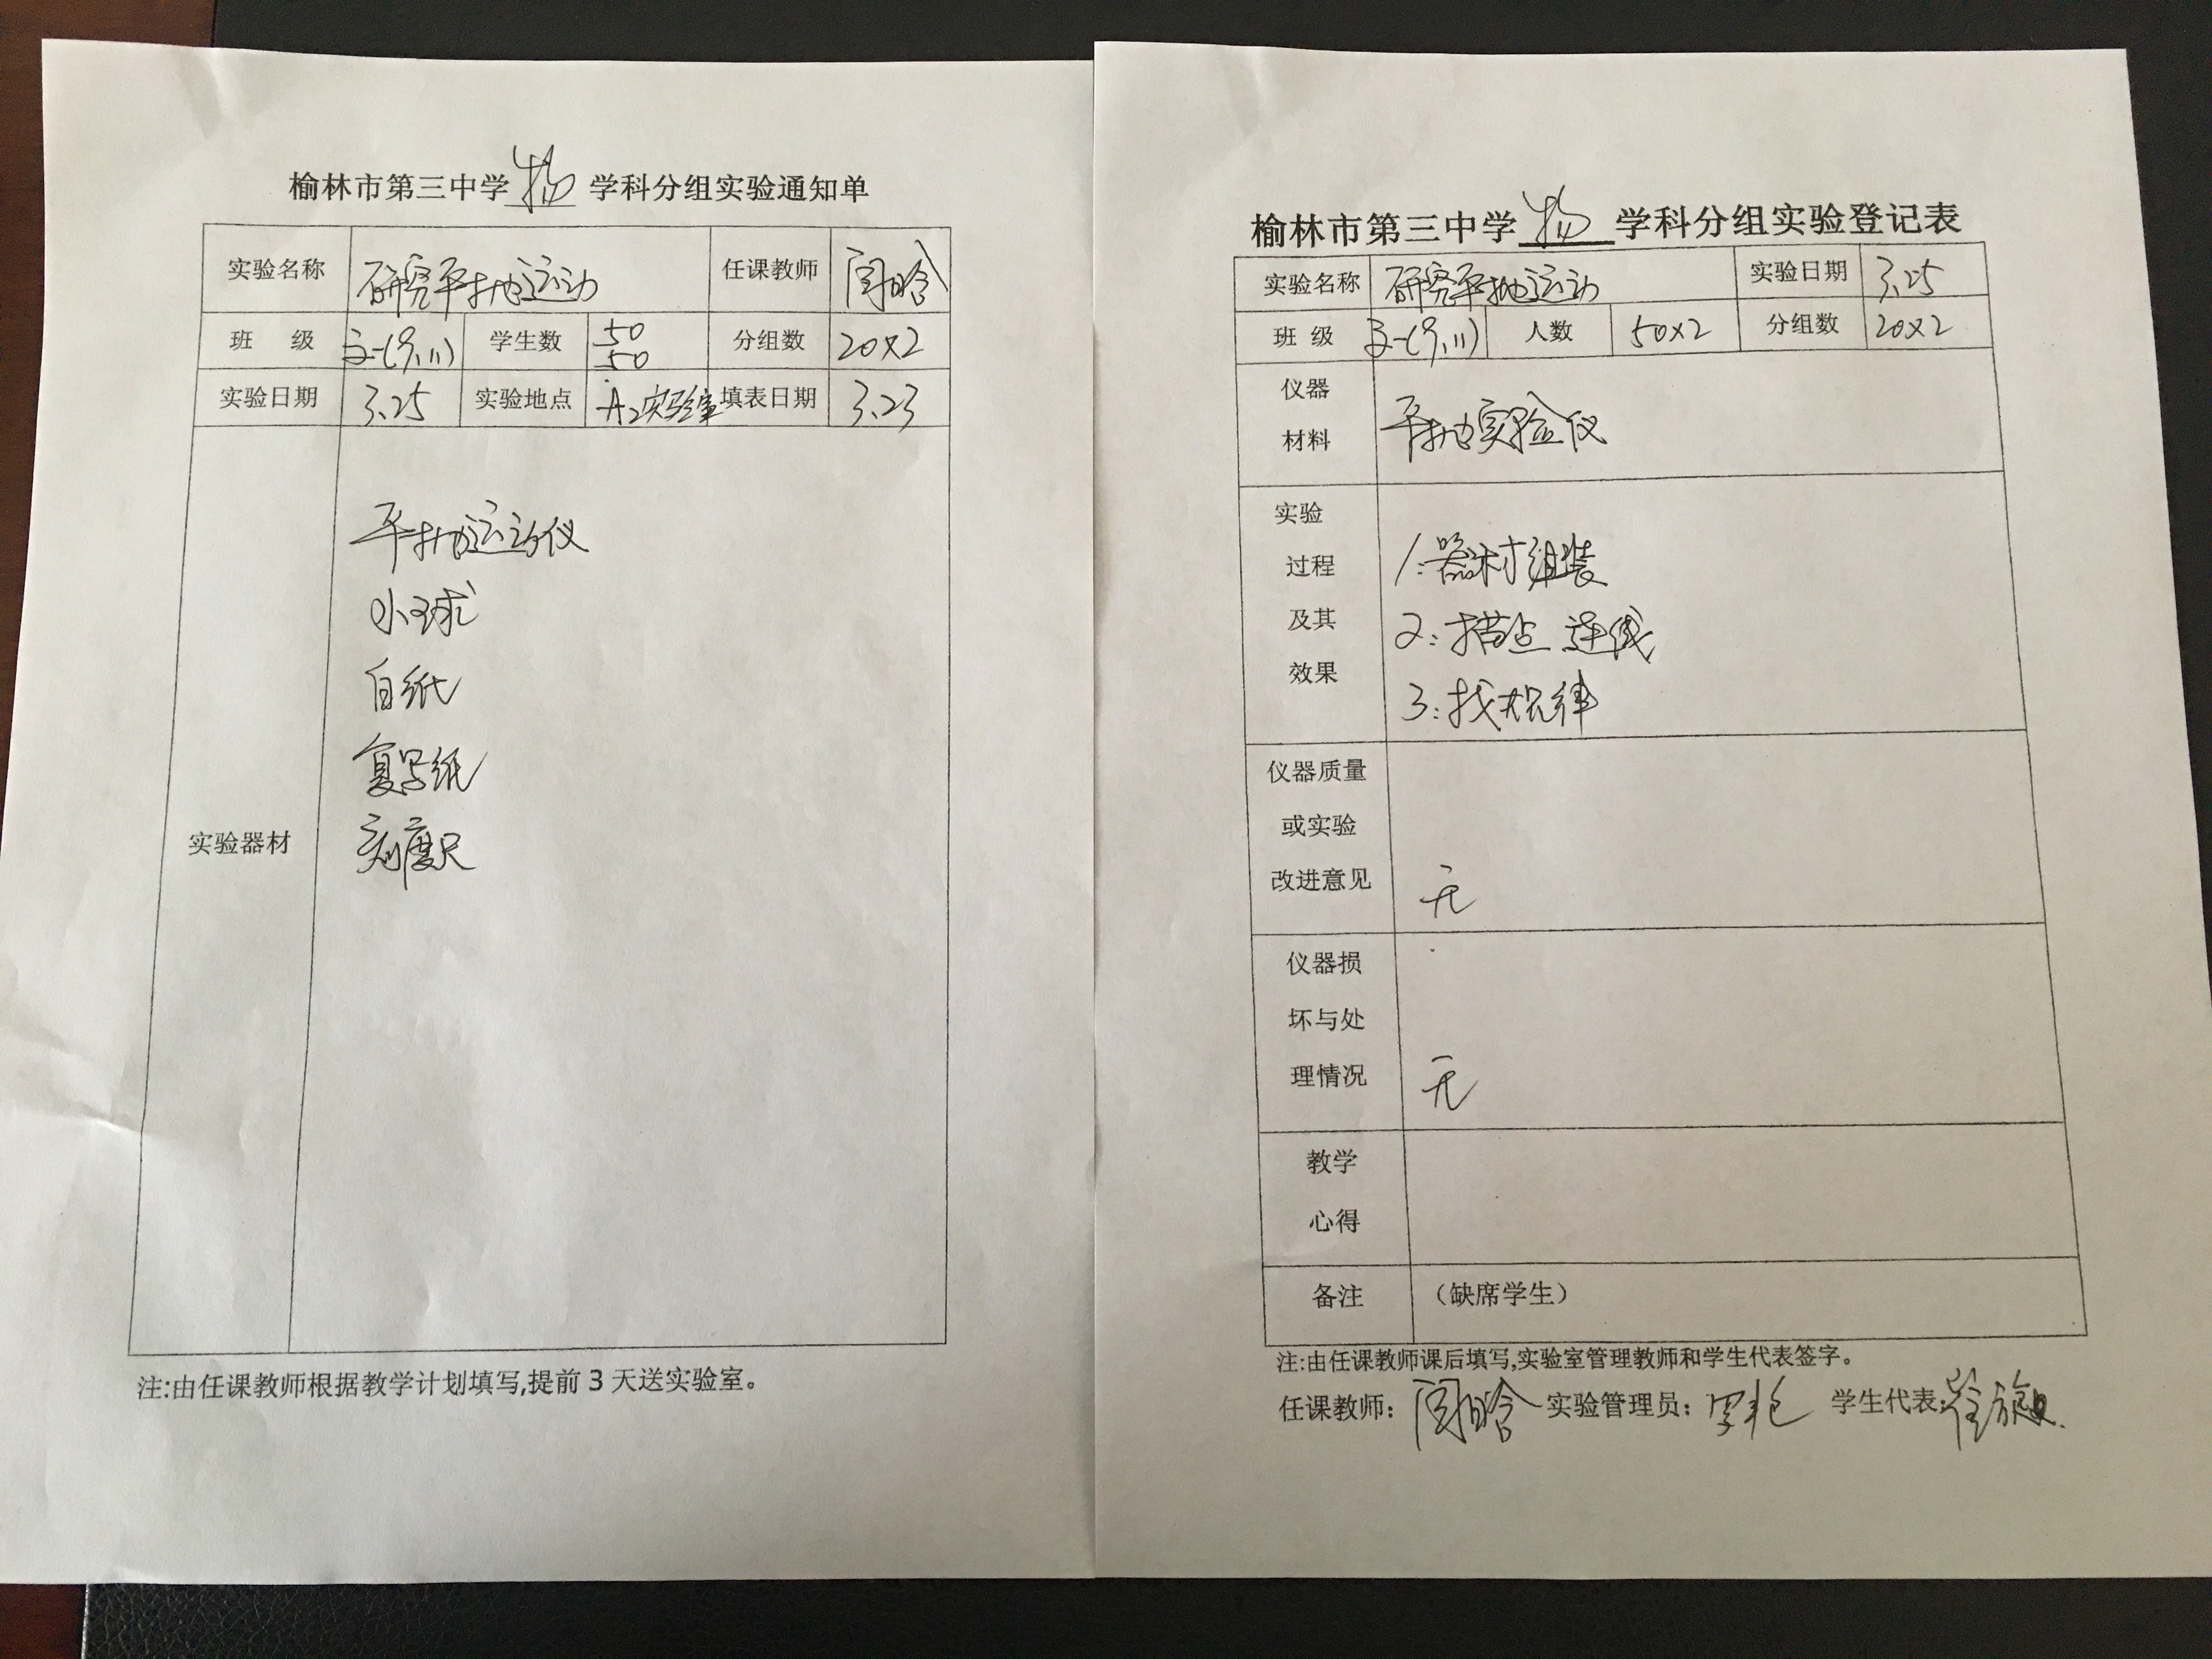 榆林市第三中学 物 学科分组实验通知单
实验名称 研究平抛运动 任课教师 闫晗
班 级 高一(9,11) 学生数 50 50 分组数 20×2
实验日期 3.25 实验地点 A2实验室 填表日期 3.23
实验器材
平抛运动仪
小球
白纸
复写纸
刻度尺
注:由任课教师根据教学计划填写,提前3天送实验室。
榆林市第三中学 物 学科分组实验登记表
实验名称 研究平抛运动 实验日期 3.25
班 级 高一(9,11) 人数 50×2 分组数 20×2
仪器
材料
平抛实验仪
实验
过程
及其
效果
1:器材组装
2:描点 连线
3:找规律
仪器质量
或实验
改进意见
无
仪器损
坏与处
理情况
无
教学
心得
备注 (缺席学生)
注:由任课教师课后填写,实验室管理教师和学生代表签字。
任课教师: 闫晗 实验管理员: 学生代表: